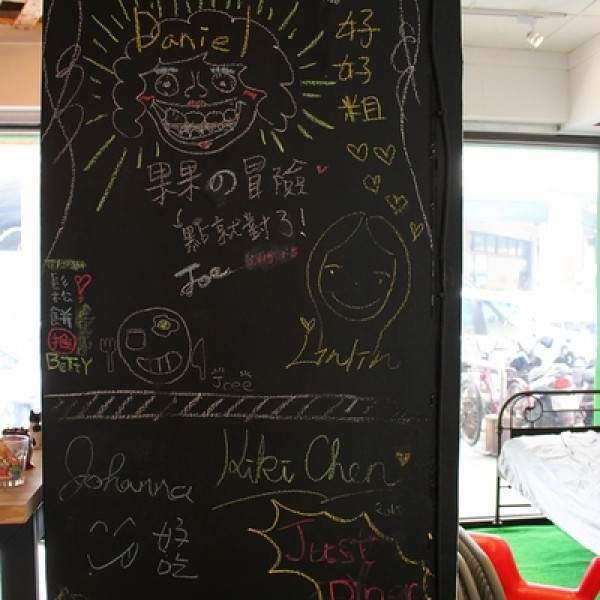 Daniel
好好粗
果果の冒險
點就對了!
Joe
鬆鬆餅
推
BeTTY
Joee
LinLin
Johanna
Kiki Chen
好吃
2015
Just
Diner